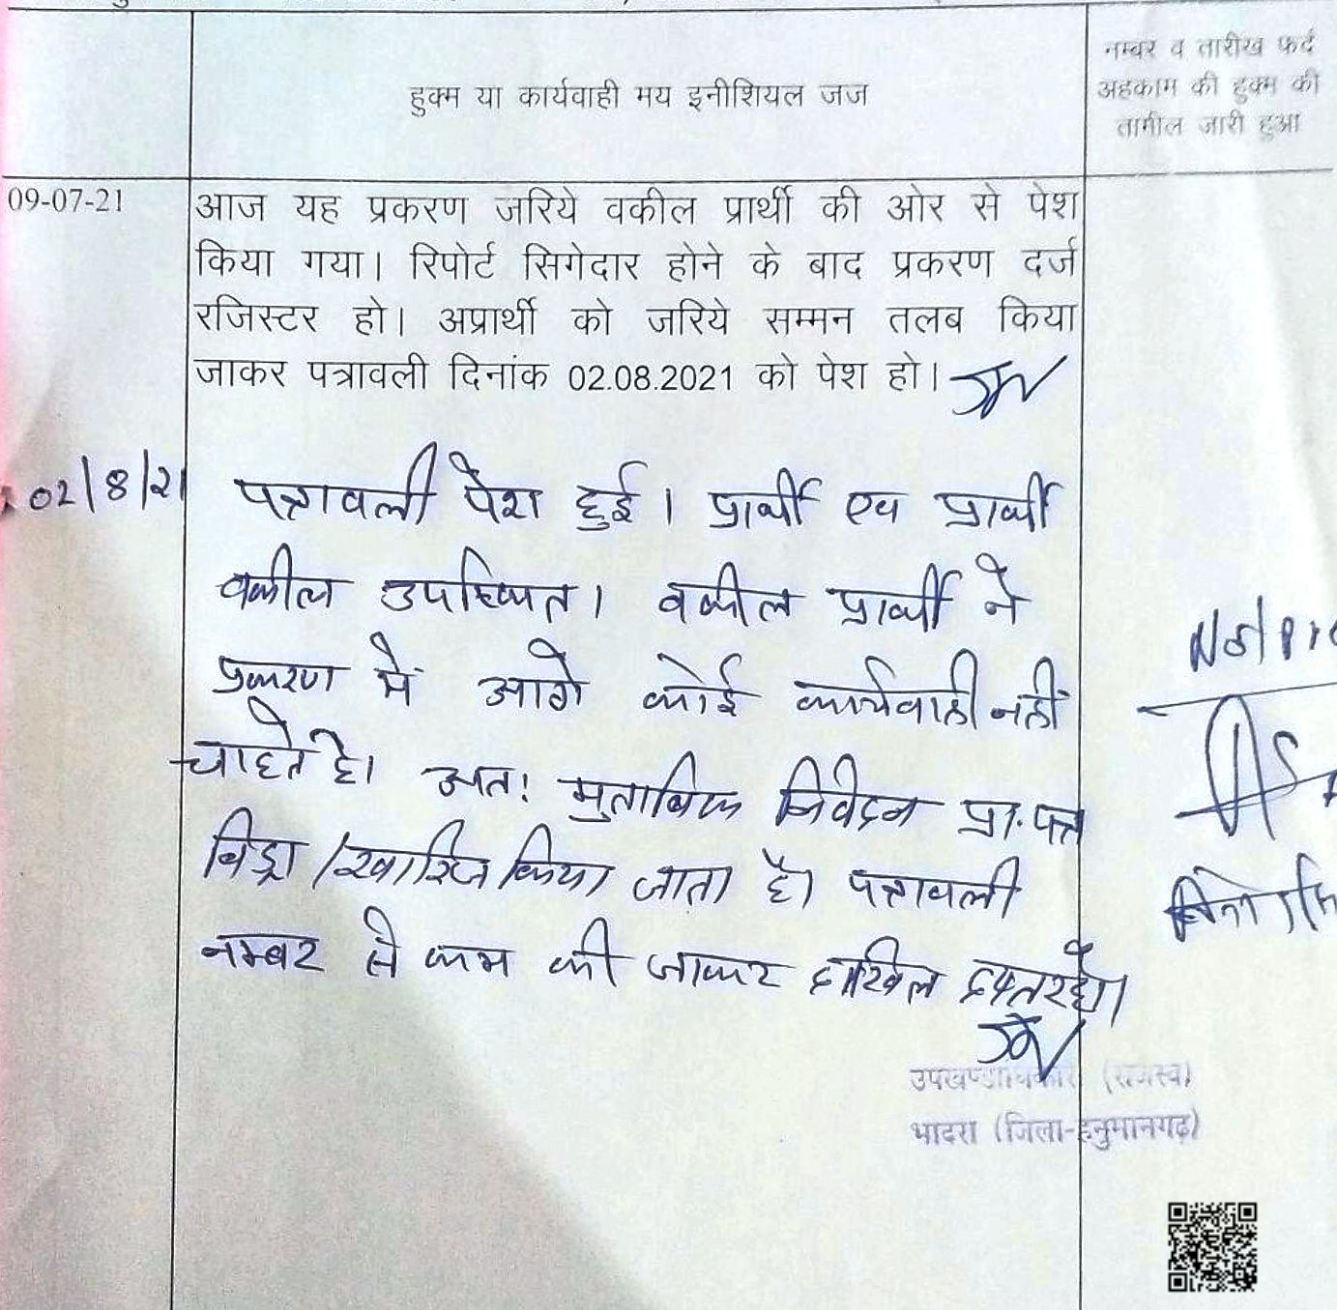 हुक्म या कार्यवाही मय इनीशियल जज
नम्बर व तारीख फर्द
अहकाम की हुक्म की
तामील जारी हुआ
09-07-21
आज यह प्रकरण जरिये वकील प्रार्थी की ओर से पेश
किया गया। रिपोर्ट सिगेदार होने के बाद प्रकरण दर्ज
रजिस्टर हो। अप्रार्थी को जरिये सम्मन तलब किया
जाकर पत्रावली दिनांक 02.08.2021 को पेश हो।
02/8/21
पत्रावली पेश हुई। प्रार्थी एव प्रार्थी
वकील उपस्थित। वकील प्रार्थी ने
प्रकरण में आगे कोई कार्यवाही नहीं
चाहते है। अत: मुताबिक निवेदन प्रा.पत्र
विड्रा/खारिज किया जाता है। पत्रावली
नम्बर से कम की जाकर दाखिल दफ्तर हो।
उपखण्डाधिकारी (राजस्व)
भादरा (जिला-हनुमानगढ़)